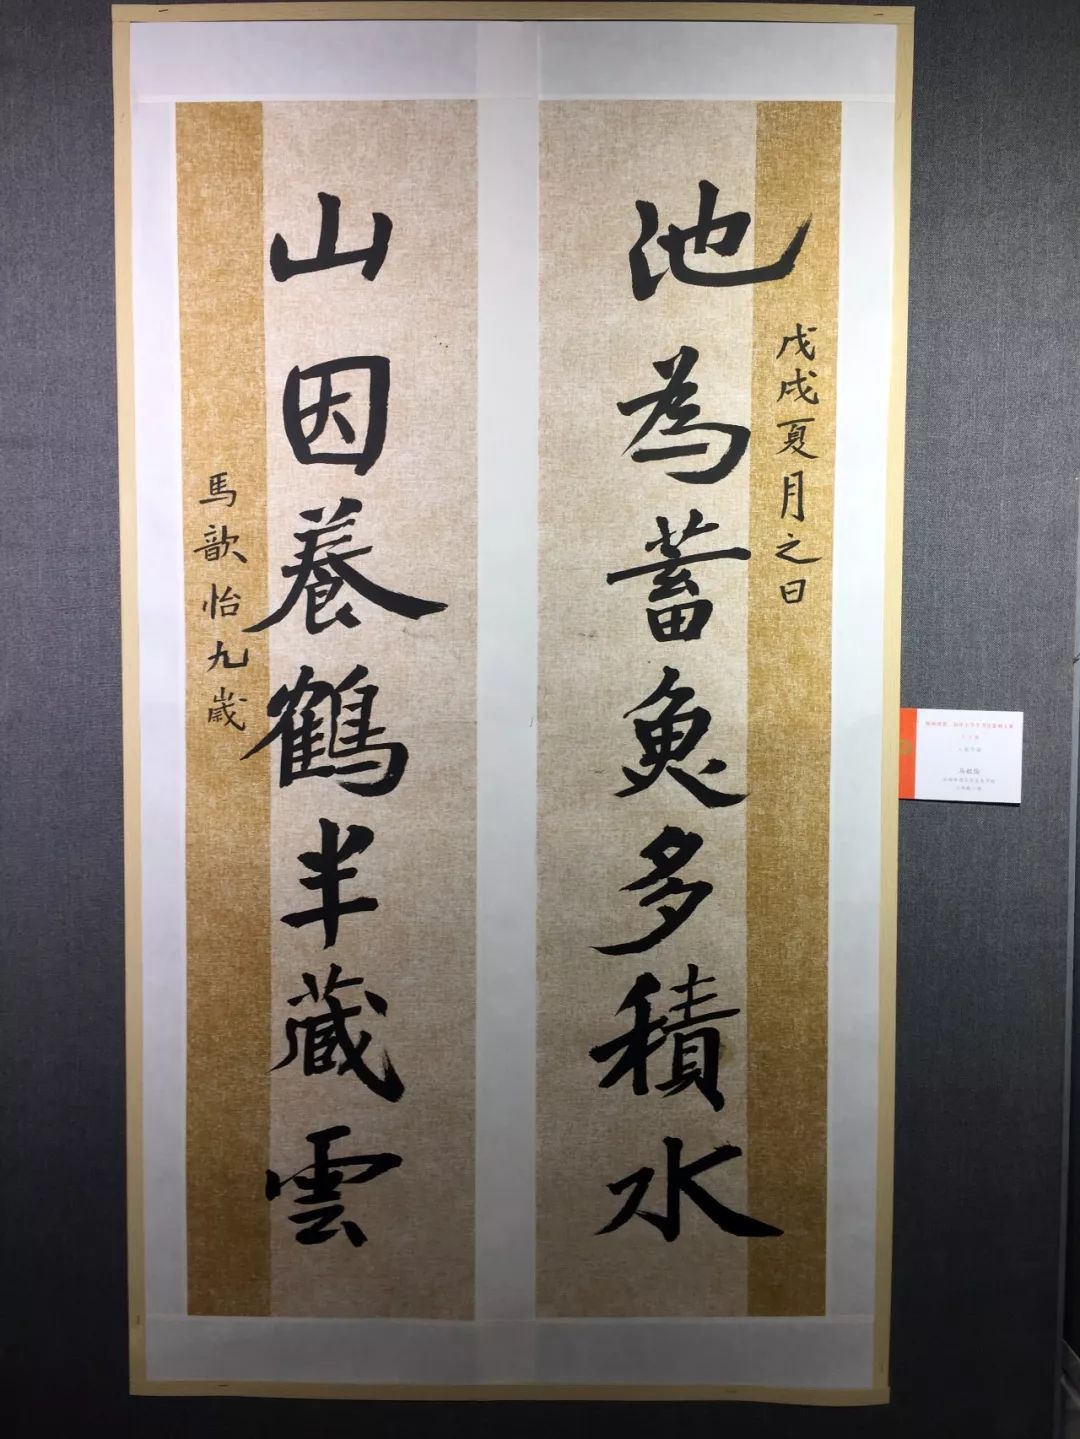 池為蓄魚多積水
戊戌夏月之日
山因養鶴半藏雲
馬歆怡九歲